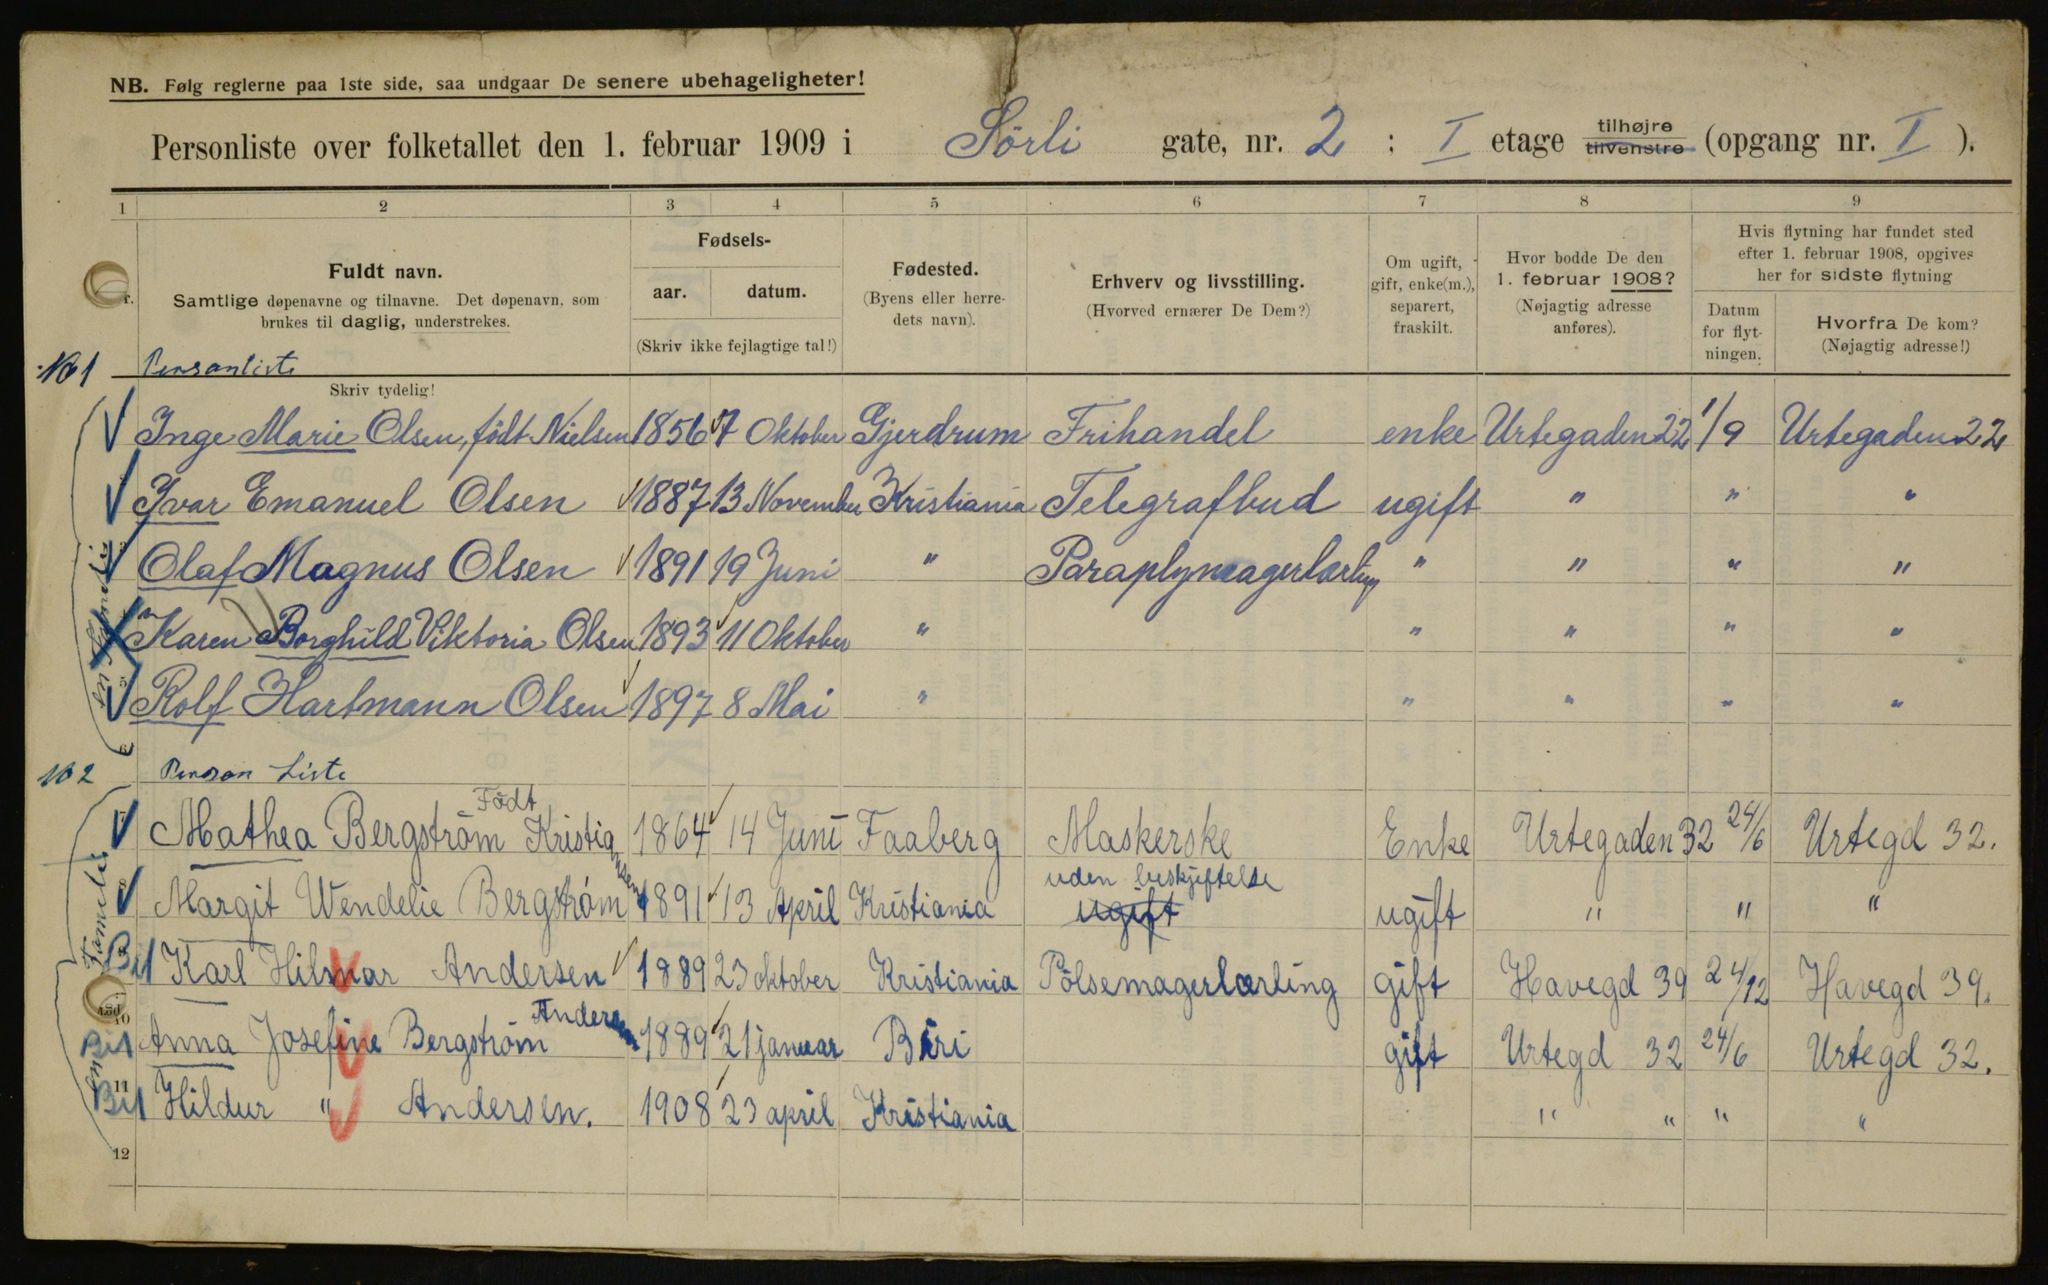 NB. Følg reglerne paa 1ste side, saa undgaar De senere ubehageligheter!
Personliste over folketallet den 1. februar 1909 i Sörli gate, nr. 2 ; I etage tilhøjre tilvenstre (opgang nr. I ).
1 2 3 4 5 6 7 8 9
Fuldt navn.
Samtlige døpenavne og tilnavne. Det døpenavn, som
brukes til daglig, understrekes.
Fødsels-
aar. datum.
(Skriv ikke fejlagtige tal!)
Fødested.
(Byens eller herre-
dets navn).
Erhverv og livsstilling.
(Hvorved ernærer De Dem?)
Om ugift,
gift, enke(m.),
separert,
fraskilt.
Hvor bodde De den
1. februar 1908?
(Nøjagtig adresse
anføres).
Hvis flytning har fundet sted
efter 1. februar 1908, opgives
her for sidste flytning
Datum
for flyt-
ningen.
Hvorfra De kom?
(Nøjagtig adresse!)
161 Personliste
Skriv tydelig!
Inge Marie Olsen, födt Nielsen 1856 7 Oktober Gjerdrum Frihandel enke Urtegaden 22 1/9 Urtegaden 22
Ivar Emanuel Olsen 1887 13 November Kristiania Telegrafbud ugift " " "
Olaf Magnus Olsen 1891 19 Juni " Paraplymagerlærling " " " "
Karen Borghild Viktoria Olsen 1893 11 Oktober " " " " "
5 Rolf Hartmann Olsen 1897 8 Mai " " " " "
6
162 Person Liste
Mathea Bergström Födt Kristiansen 1864 14 Juni Faaberg Maskerske Enke Urtegaden 32 24/6 Urtegd 32.
Margit Wendelie Bergström 1891 13 April Kristiania uden beskjeftelse ugift ugift " " "
Karl Hilmar Andersen 1889 23 oktober Kristiania Pölsemagerlærling gift Havegd 39 24/12 Havegd 39.
10 Anna Josefine Bergström Andersen 1889 21 januar Biri gift Urtegd 32 24/6 Urtegd 32.
11 Hildur " Andersen. 1908 23 april Kristiania " " " "
12